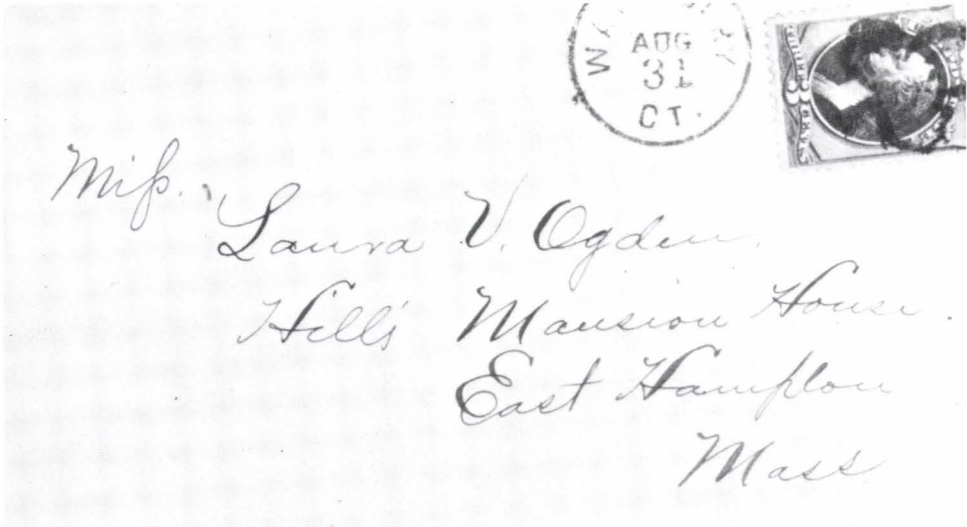 AUG
31
CT.
Miss.
Laura V. Ogden.
Hills' Mansion House.
East Hampton
Mass